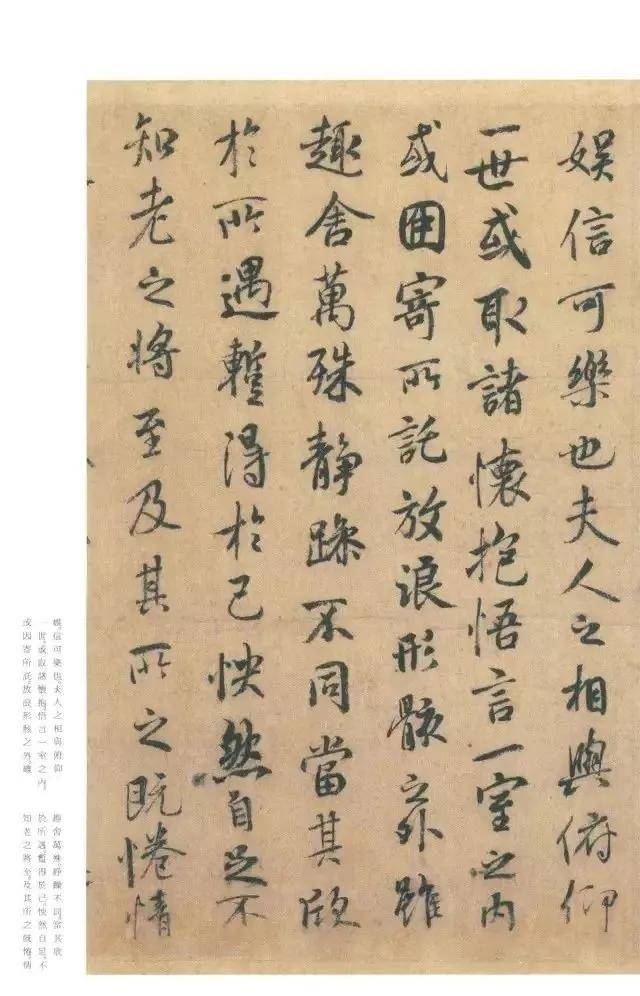 娱信可樂也夫人之相與俯仰
一世或取諸懷抱悟言一室之内
或因寄所託放浪形骸之外雖
趣舍萬殊静躁不同當其欣
於所遇蹔得於己怏然自足不
知老之将至及其所之既惓情
娛，信可樂也。夫人之相與俯仰
一世，或取諸懷抱，悟言一室之內，
或因寄所託，放浪形骸之外。雖
趣舍萬殊，靜躁不同，當其欣
於所遇，蹔得於己，怏然自足，不
知老之將至。及其所之既惓，情